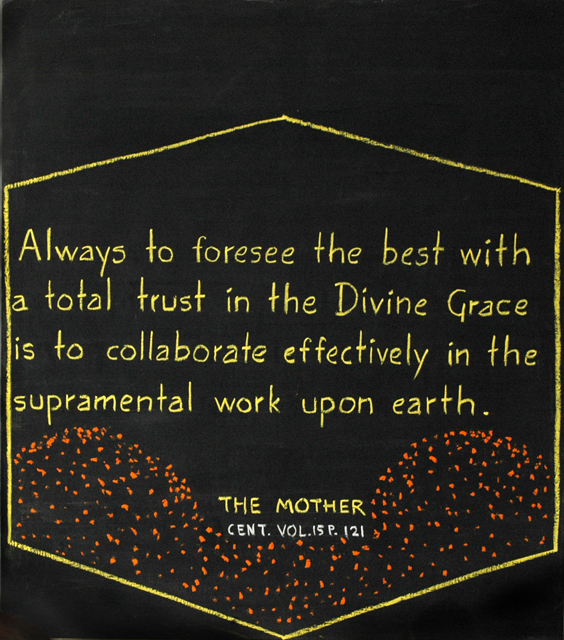 Always to foresee the best with
a total trust in the Divine Grace
is to collaborate effectively in the
supramental work upon earth.
THE MOTHER
CENT. VOL.15 P. 121